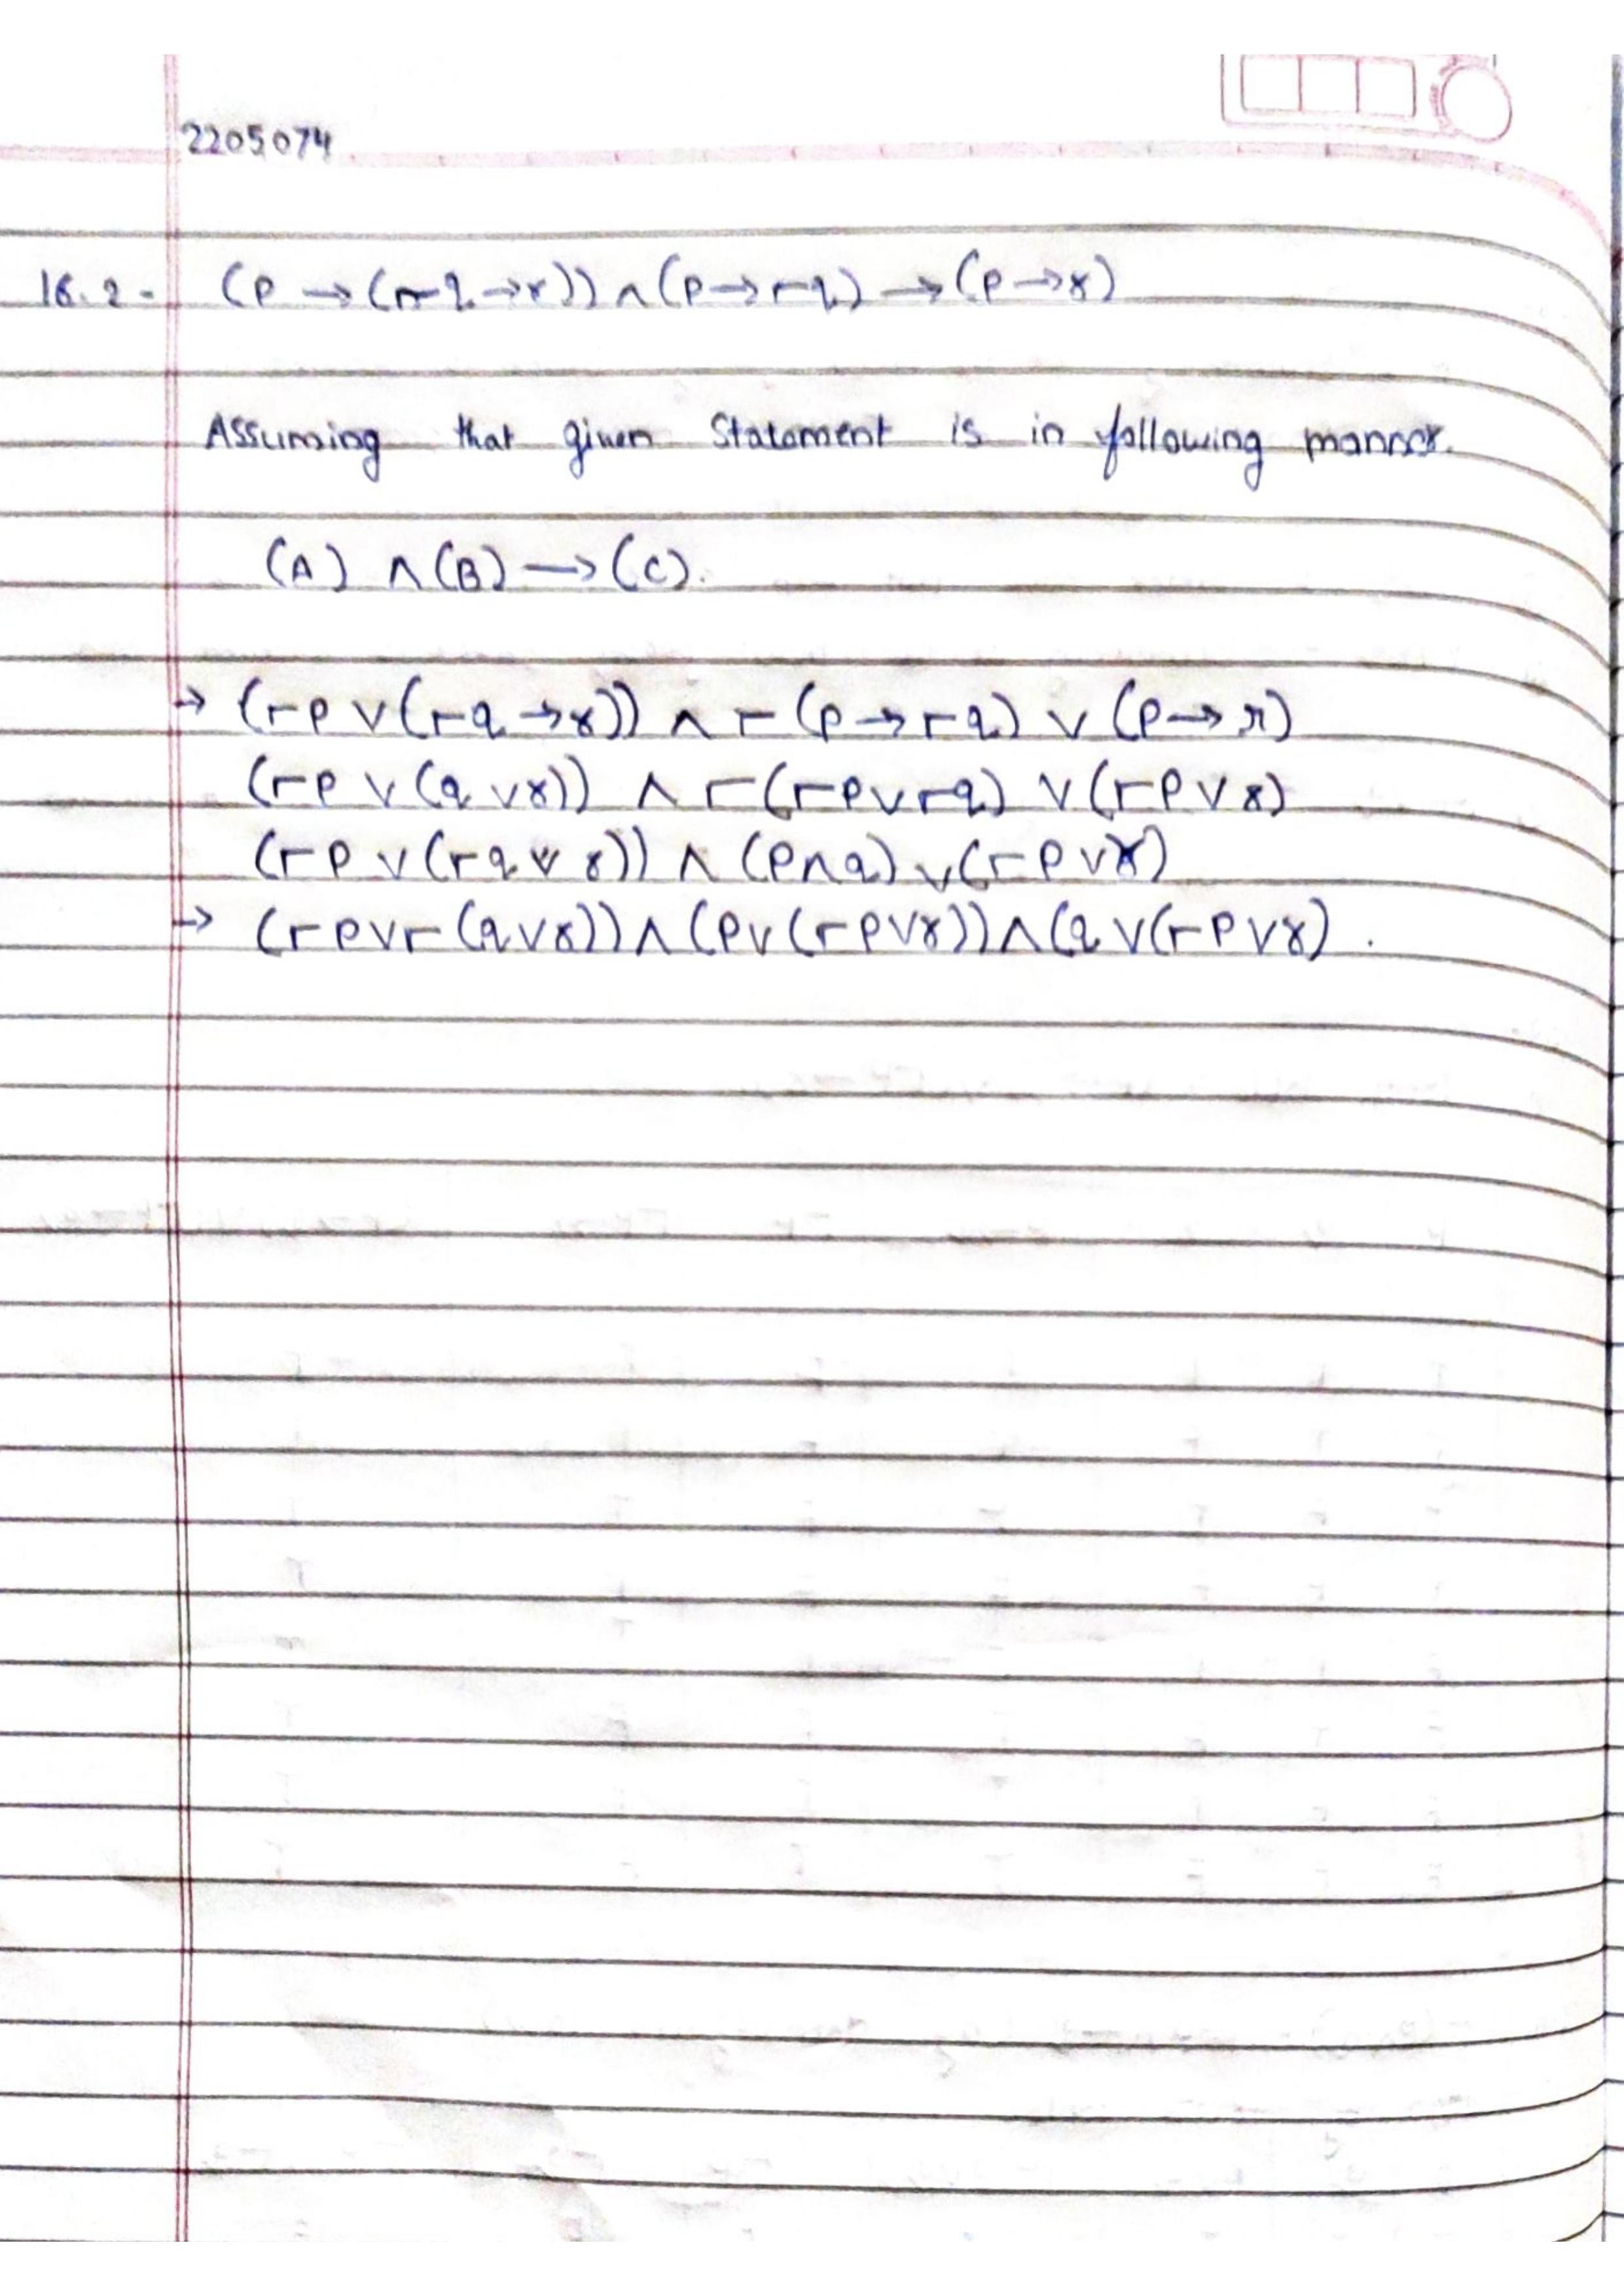 2205074
16.2- (p → (¬q → r)) ∧ (p → ¬q) → (p → r)
Assuming that given Statement is in following manner.
(A) ∧ (B) → (C).
→ (¬p ∨ (¬q → r)) ∧ ¬(p → ¬q) ∨ (p → r)
(¬p ∨ (q ∨ r)) ∧ ¬(¬p ∨ ¬q) ∨ (¬p ∨ r)
(¬p ∨ (¬q ∨ r)) ∧ (p ∧ q) ∨ (¬p ∨ r)
→ (¬p ∨ ¬(q ∨ r)) ∧ (p ∨ (¬p ∨ r)) ∧ (q ∨ (¬p ∨ r) .